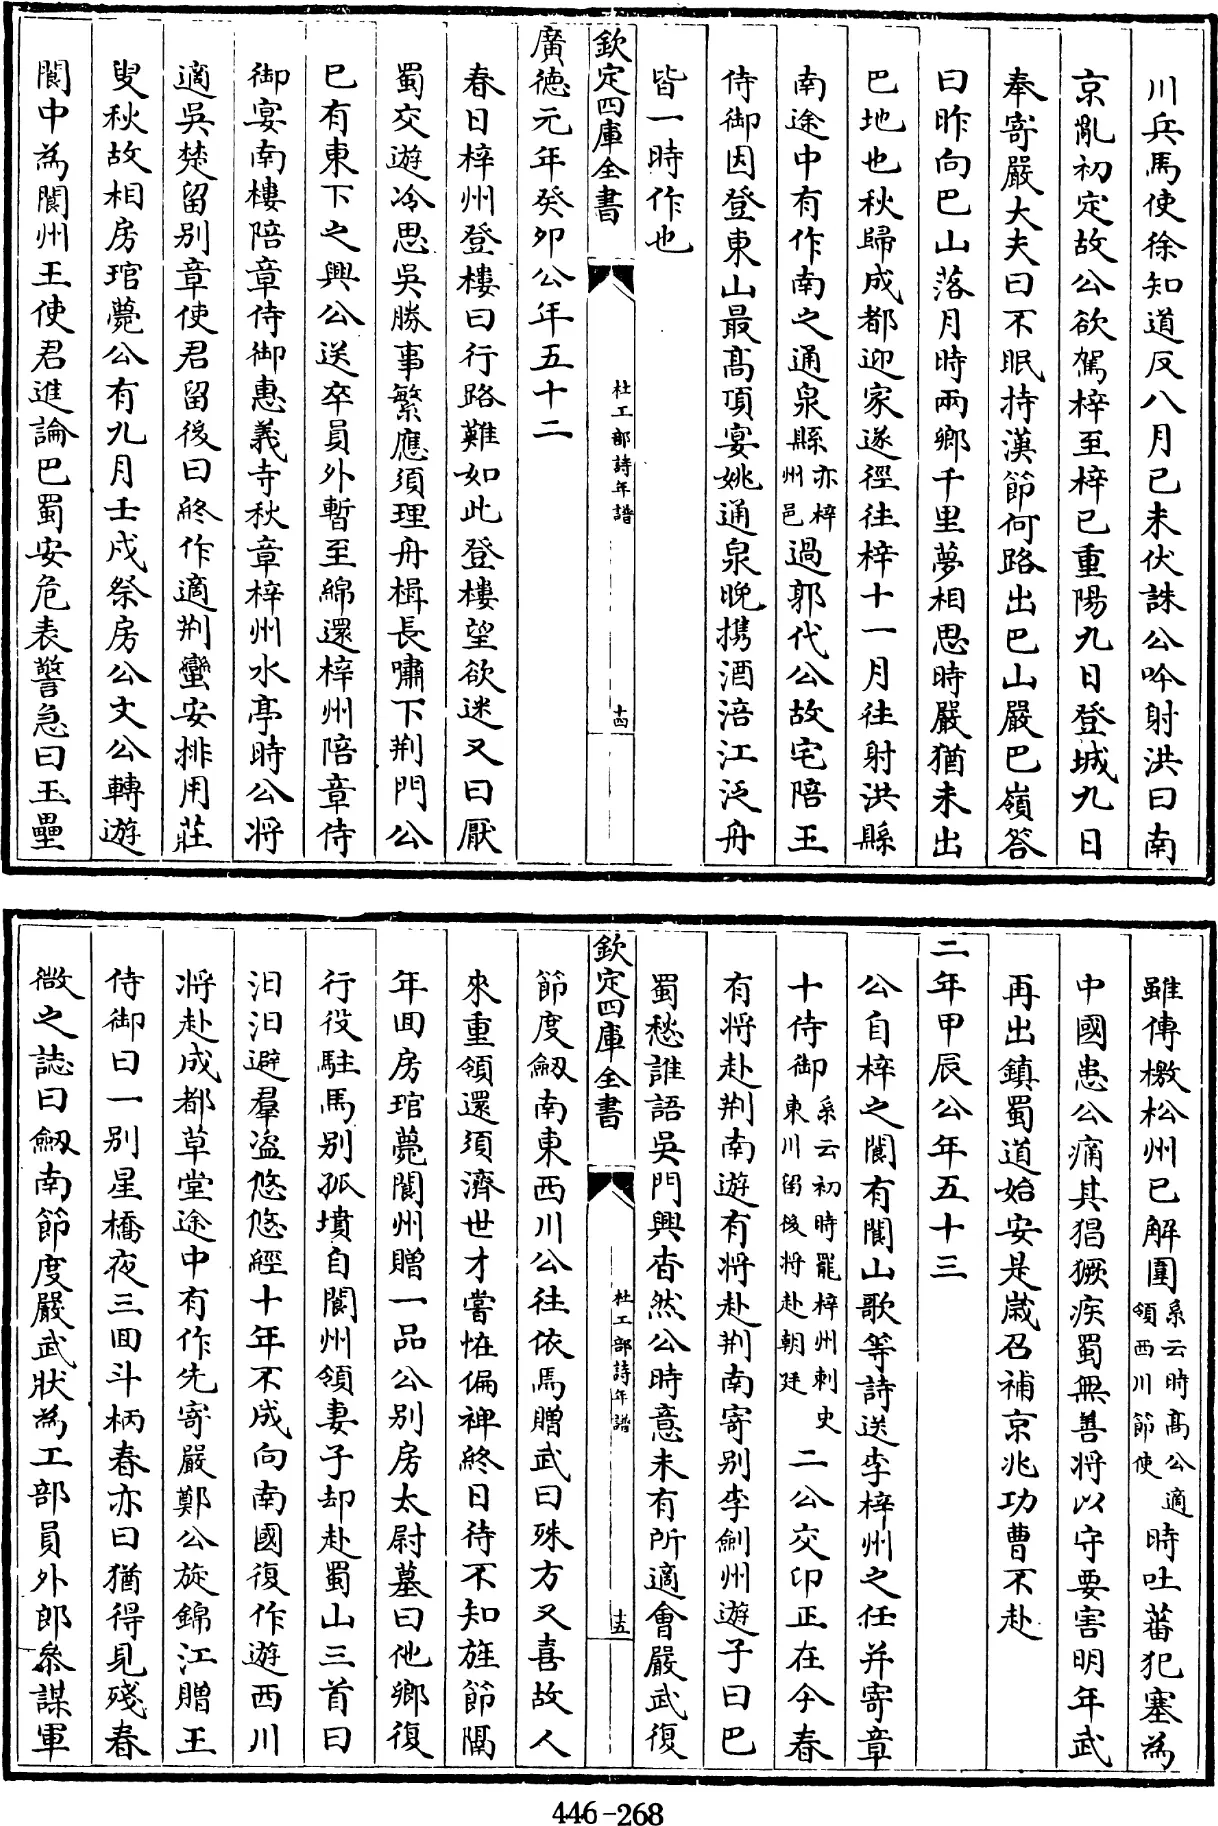 川兵馬使徐知道反八月已未伏誅公吟射洪曰南
京亂初定故公欲駕梓至梓已重陽九日登城九日
奉寄嚴大夫曰不眠持漢節何路出巴山嚴巴嶺答
曰昨向巴山落月時兩鄉千里夢相思時嚴猶未出
巴地也秋歸成都迎家遂徑往梓十一月往射洪縣
南途中有作南之通泉縣亦梓州邑過郭代公故宅陪王
侍御因登東山最高頂宴姚通泉晚攜酒涪江泛舟
皆一時作也
欽定四庫全書
杜工部詩年譜
十四
廣德元年癸卯公年五十二
春日梓州登樓曰行路難如此登樓望欲迷又曰厭
蜀交遊冷思吳勝事繁應須理舟楫長嘯下荆門公
已有東下之興公送卒員外暫至綿還梓州陪章侍
御宴南樓陪章侍御惠義寺秋章梓州水亭時公將
適吳楚留别章使君留後曰終作適荆蠻安排用莊
叟秋故相房琯薨公有九月壬戌祭房公文公轉遊
閬中為閬州王使君進論巴蜀安危表警急曰玉壘
雖傳檄松州已解圍系云時髙公適領西川節使時吐蕃犯塞為
中國患公痛其猖獗疾蜀無善將以守要害明年武
再出鎮蜀道始安是歲召補京兆功曹不赴
二年甲辰公年五十三
公自梓之閬有閬山歌等詩送李梓州之任并寄章
十侍御系云初時罷梓州刺史東川留後將赴朝廷二公交印正在今春
有將赴荆南遊有將赴荆南寄别李劒州遊子曰巴
蜀愁誰語吳門興杳然公時意未有所適會嚴武復
欽定四庫全書
杜工部詩年譜
十五
節度劒南東西川公往依焉贈武曰殊方又喜故人
來重領還須濟世才嘗怪偏禆終日待不知旌節隔
年回房琯薨閬州贈一品公别房太尉墓曰他鄉復
行役駐馬别孤墳自閬州領妻子却赴蜀山三首曰
汨汨避羣盜悠悠經十年不成向南國復作遊西川
將赴成都草堂途中有作先寄嚴鄭公旋錦江贈王
侍御曰一别星橋夜三回斗柄春亦曰猶得見殘春
微之誌曰劒南節度嚴武狀為工部員外郎叅謀軍
446-268